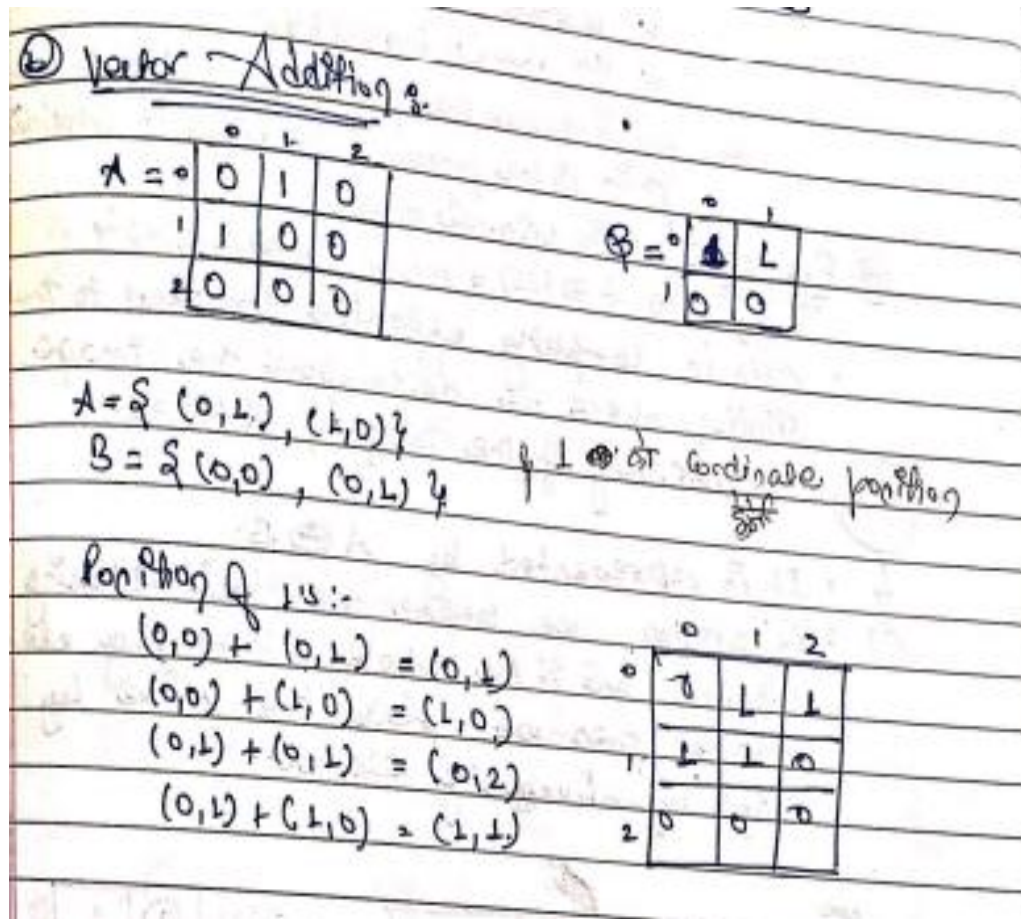 ② Vector Addition :-
0 1 2
A = 0 0 1 0
1 1 0 0
2 0 0 0
0 1
B = 0 1 1
1 0 0
A = { (0,1), (1,0) }
B = { (0,0), (0,1) } 1 Cordinate position
Position of 1's :-
(0,0) + (0,1) = (0,1)
(0,0) + (1,0) = (1,0)
(0,1) + (0,1) = (0,2)
(0,1) + (1,0) = (1,1)
0 1 2
0 0 1 1
1 1 1 0
2 0 0 0